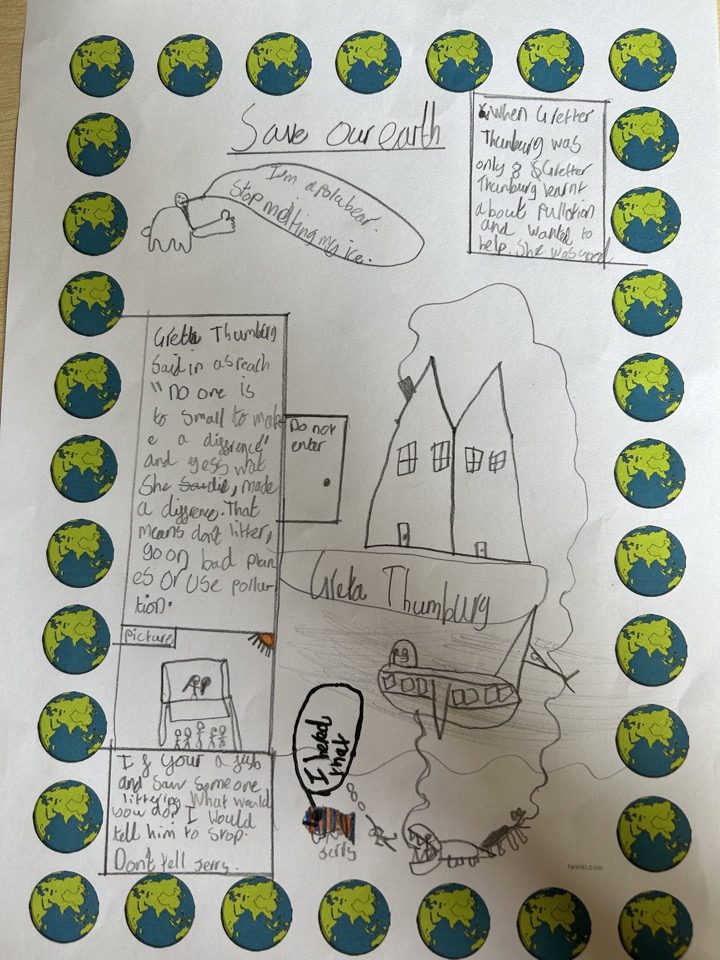 Save our earth
When Gretter
Thunburg was
only 8 Gretter
Thunburg learnt
about Pullotion
and wanted to
help. She was good
I'm a polabear.
Stop melting my ice.
Greta Thumburg
Said in a sreach
"no one is
to small to mak
e a diffrence"
and gess wat
She made
a diffrence. That
means don't litter,
go on bad plan
es or use pollu
tion.
Do not
enter
Greta Thumburg
picture
If your a fish
and saw someone
littering What would
you do? I would
tell him to stop.
Don't tell Jerry.
I heard
that
Jerry
twinkl.com